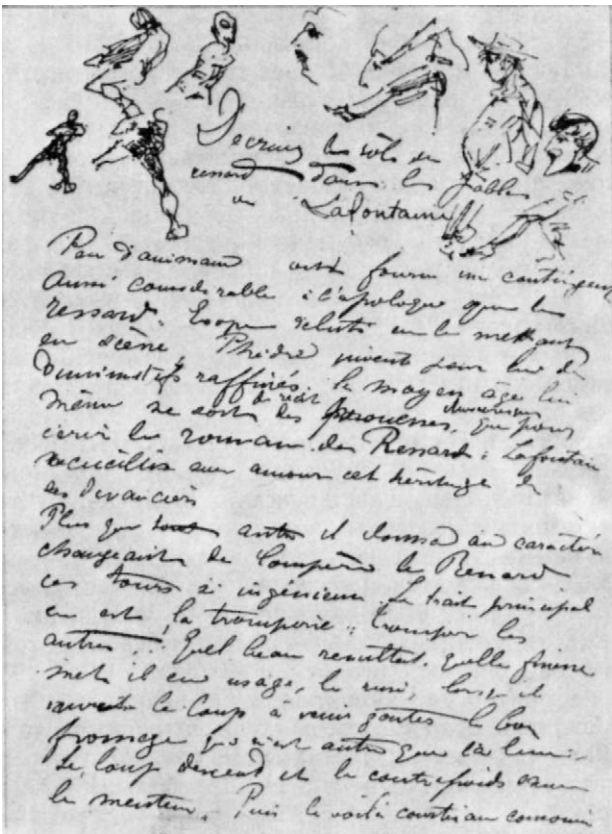 Décrivez le rôle du
renard dans les fables
de Lafontaine
Peu d'animaux ont fourni un contingent
aussi considérable à l'apologue que le
renard. Esope débute en le mettant
en scène, Phèdre
raffinés. le moyen âge lui
même ne sort des prouesses, que pour
de récit
écrir le roman du Renard; Lafontain
recueillit avec amour cet héritage de
ses devanciers
Plus que tout autre il donna au caractère
changeant de Compère le Renard
ces tours si ingénieux. Le trait principal
en est la tromperie; tromper les
autres Quel beau résultat, quelle finesse
met il en usage, le rusé, lorsqu'il
invite le Loup à venir goûter le bon
fromage qui n'est autre que la lune.
Le loup descend et le contrepoids sauve
le menteur. Puis le voilà courtisan consommé